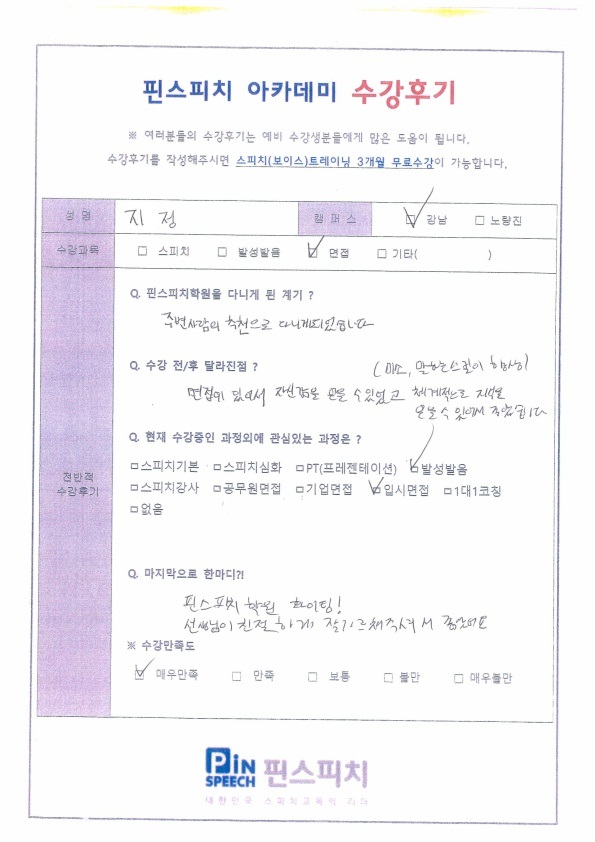 핀스피치 아카데미 수강후기
※ 여러분들의 수강후기는 예비 수강생분들에게 많은 도움이 됩니다.
수강후기를 작성해주시면 스피치(보이스)트레이닝 3개월 무료수강이 가능합니다.
성 명 지 정 캠 퍼 스 ☑ 강남 □ 노량진
수강과목 □ 스피치 □ 발성발음 ☑ 면접 □ 기타( )
전반적
수강후기
Q. 핀스피치학원을 다니게 된 계기 ?
주변사람의 추천으로 다니게되었습니다
Q. 수강 전/후 달라진점 ?
(미소, 말하는스킬이 향상)
면접에 있어서 자신감을 얻을 수 있었고 체계적으로 지식을
얻을 수 있어서 좋았습니다
Q. 현재 수강중인 과정외에 관심있는 과정은 ?
□스피치기본 □스피치심화 □PT(프레젠테이션) ☑발성발음
□스피치강사 □공무원면접 □기업면접 ☑입시면접 □1대1코칭
□없음
Q. 마지막으로 한마디?!
핀스피치 학원 화이팅!
선생님이 친절하게 잘가르쳐주셔서 좋았어요
※ 수강만족도
☑ 매우만족 □ 만족 □ 보통 □ 불만 □ 매우불만
PiN
SPEECH 핀스피치
대한민국 스피치교육의 리더